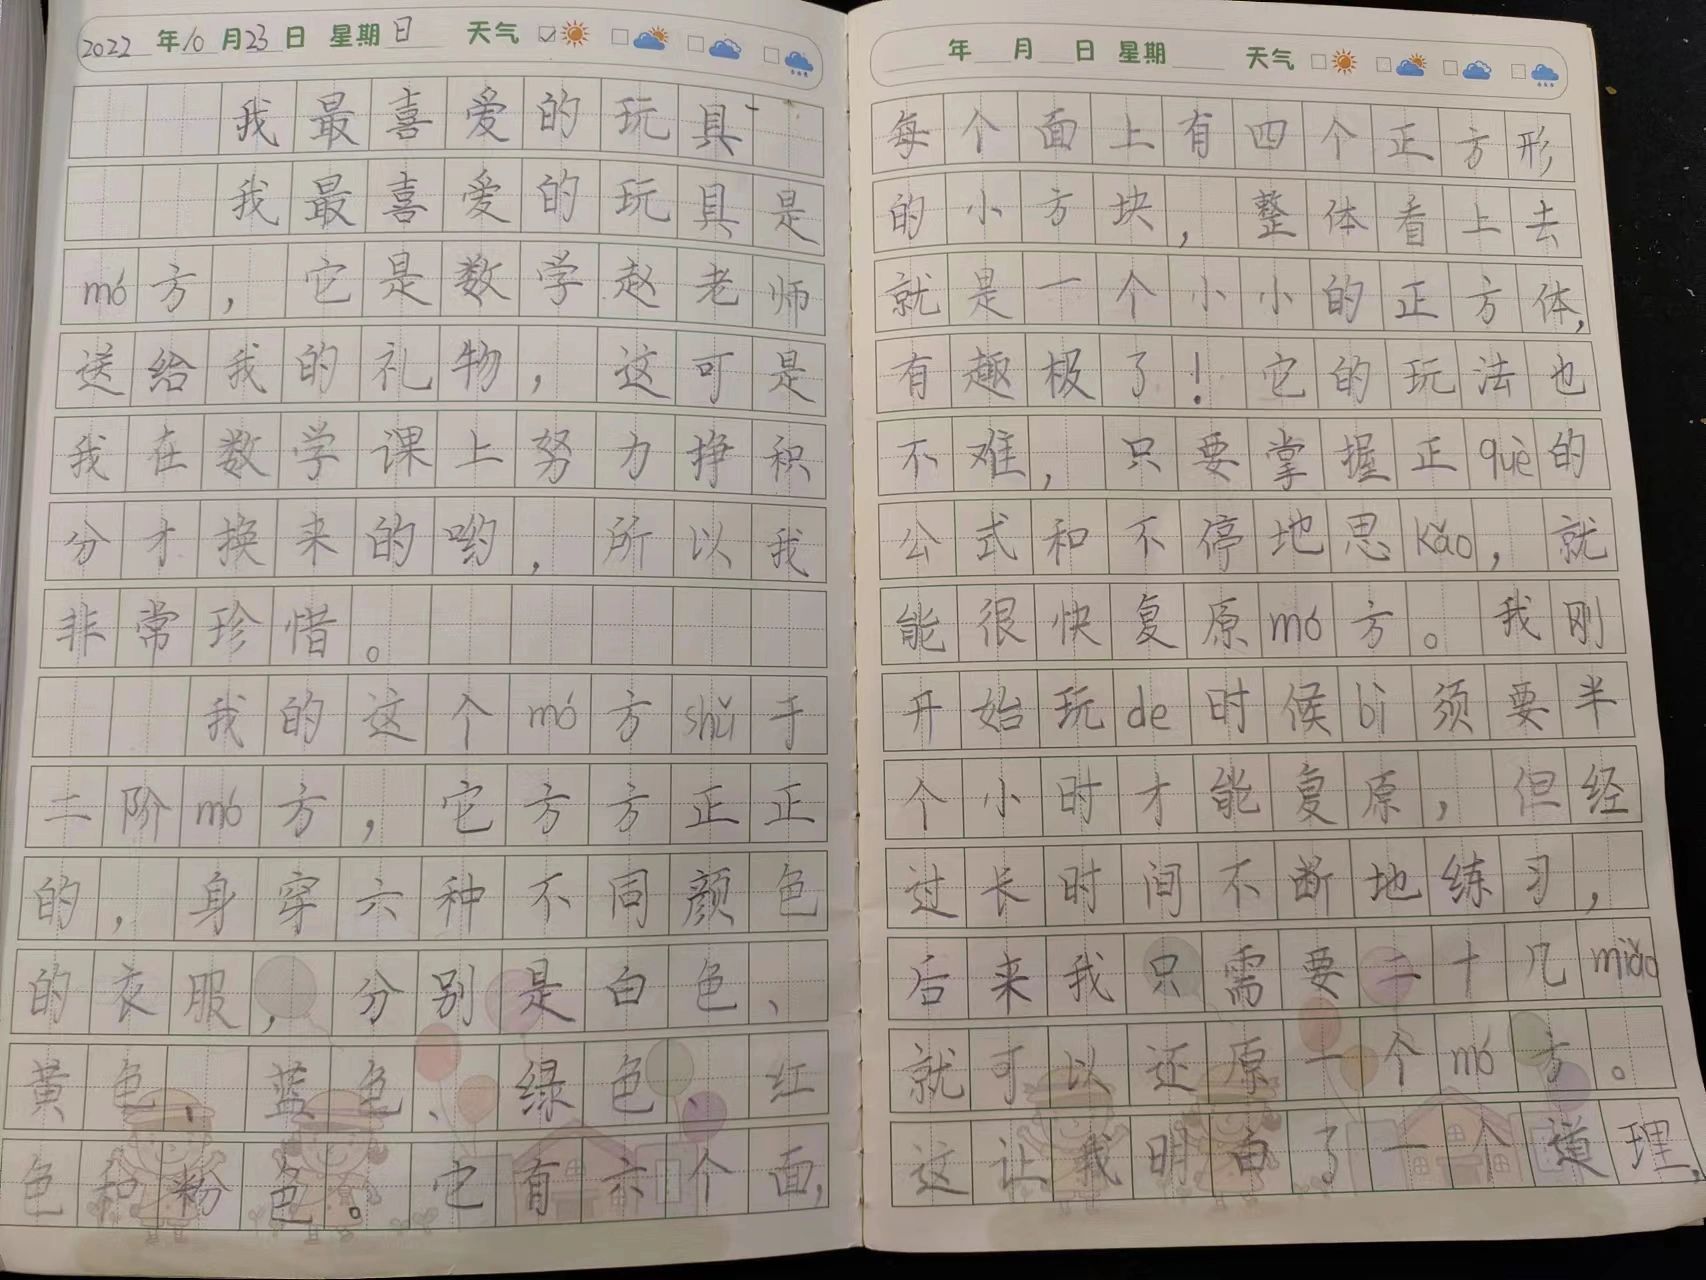 2022 年10 月23 日 星期日 天气
我最喜爱的玩具
我最喜爱的玩具是
mó方，它是数学赵老师
送给我的礼物，这可是
我在数学课上努力挣积
分才换来的哟，所以我
非常珍惜。
我的这个mó方shǔ于
二阶mó方，它方方正正
的，身穿六种不同颜色
的衣服，分别是白色、
黄色、蓝色、绿色、红
色和粉色。它有六个面，
年 月 日 星期 天气
每个面上有四个正方形
的小方块，整体看上去
就是一个小小的正方体，
有趣极了！它的玩法也
不难，只要掌握正què的
公式和不停地思kǎo，就
能很快复原mó方。我刚
开始玩de时候bì须要半
个小时才能复原，但经
过长时间不断地练习，
后来我只需要二十几miǎo
就可以还原一个mó方。
这让我明白了一个道理，